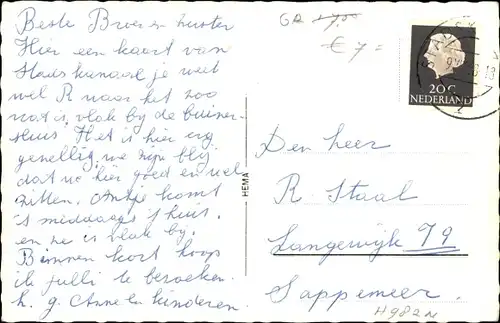 Beste Broer en zuster
Hier een kaart van
Stadskanaal je weet
wel R naar het zoo
wat is, vlak bij de buiner-
sluis. Het is hier erg
gezellig, we zijn blij
dat we hier goed en wel
zitten. Antje komt
's middaags thuis.
en ze is vlak bij.
Binnen kort hoop
ik julli te bezoeken.
h. g. Anne en kinderen.
GR 17,50
€ 7=
20 C
NEDERLAND
HEMA
Den heer
R. Staal
Langewijk 79
Sappemeer.
H982N